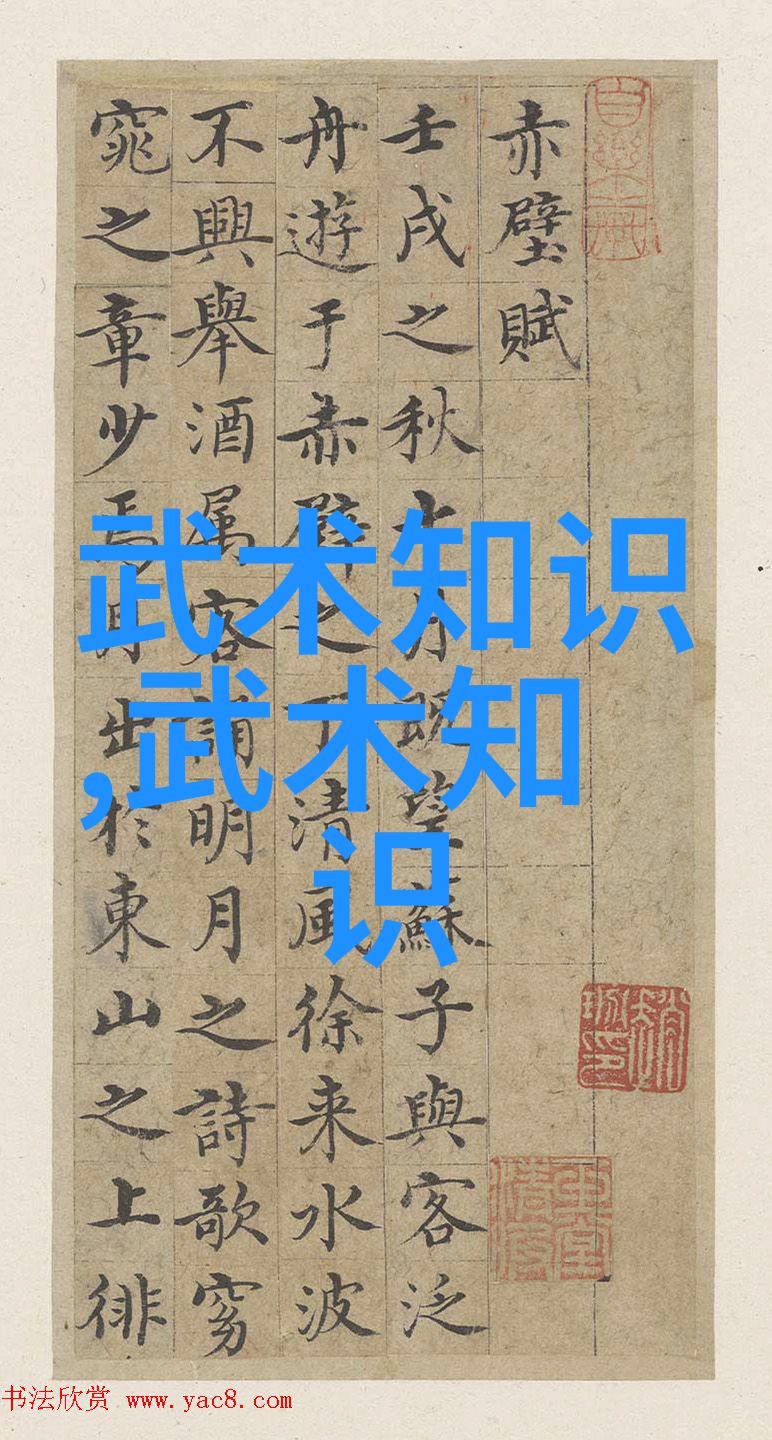 赤壁賦
壬戌之秋七月既望蘇子與客泛
舟遊于赤壁之下清風徐来水波
不興舉酒属客誦明月之詩歌窈
窕之章少焉月出於東山之上徘
武术知识
,武术知
识
书法欣赏 www.yac8.com